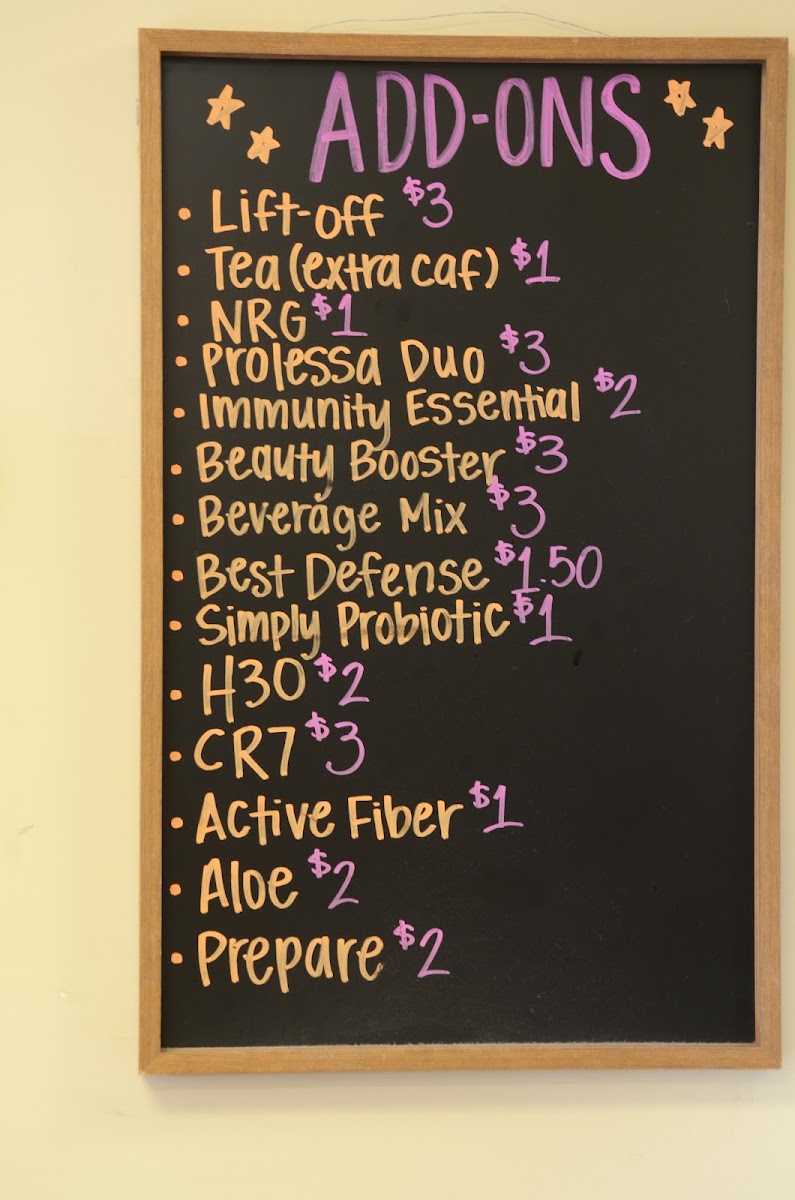 ADD-ONS
• Lift-off $3
• Tea (extra caf) $1
• NRG $1
• Prolessa Duo $3
• Immunity Essential $2
• Beauty Booster $3
• Beverage Mix $3
• Best Defense $1.50
• Simply Probiotic $1
• H30 $2
• CR7 $3
• Active Fiber $1
• Aloe $2
• Prepare $2